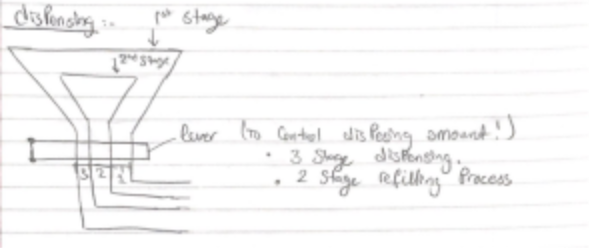 dispensing :-
1st stage
2nd stage
lever (to control dispensing amount!)
• 3 stage dispensing.
• 2 stage refilling process
3 2 1